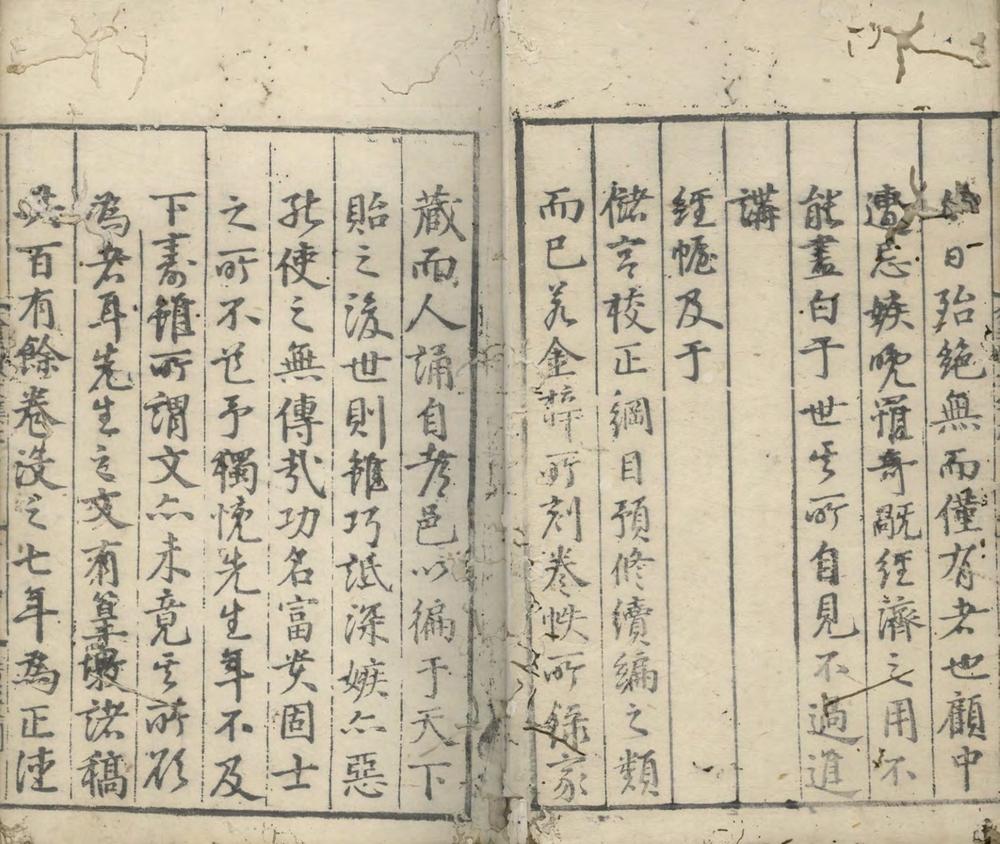 日殆絕無而僅有者也顧中
遭忌嫉晚罹奇經濟之用不
能盡白于世其所自見不過進
講
經幄及于
儲宮校正綱目預修續編之類
而已若金所刻卷帙所錄家
藏而人誦自都邑以徧于天下
貽之後世則雖巧詆深嫉亦惡
能使之無傳哉功名富貴固士
之所不予獨惋先生年不及
下壽雖所謂文亦未竟其所欲
為者耳先生之文有篁墩諸稿
共百有餘卷沒之七年為正德